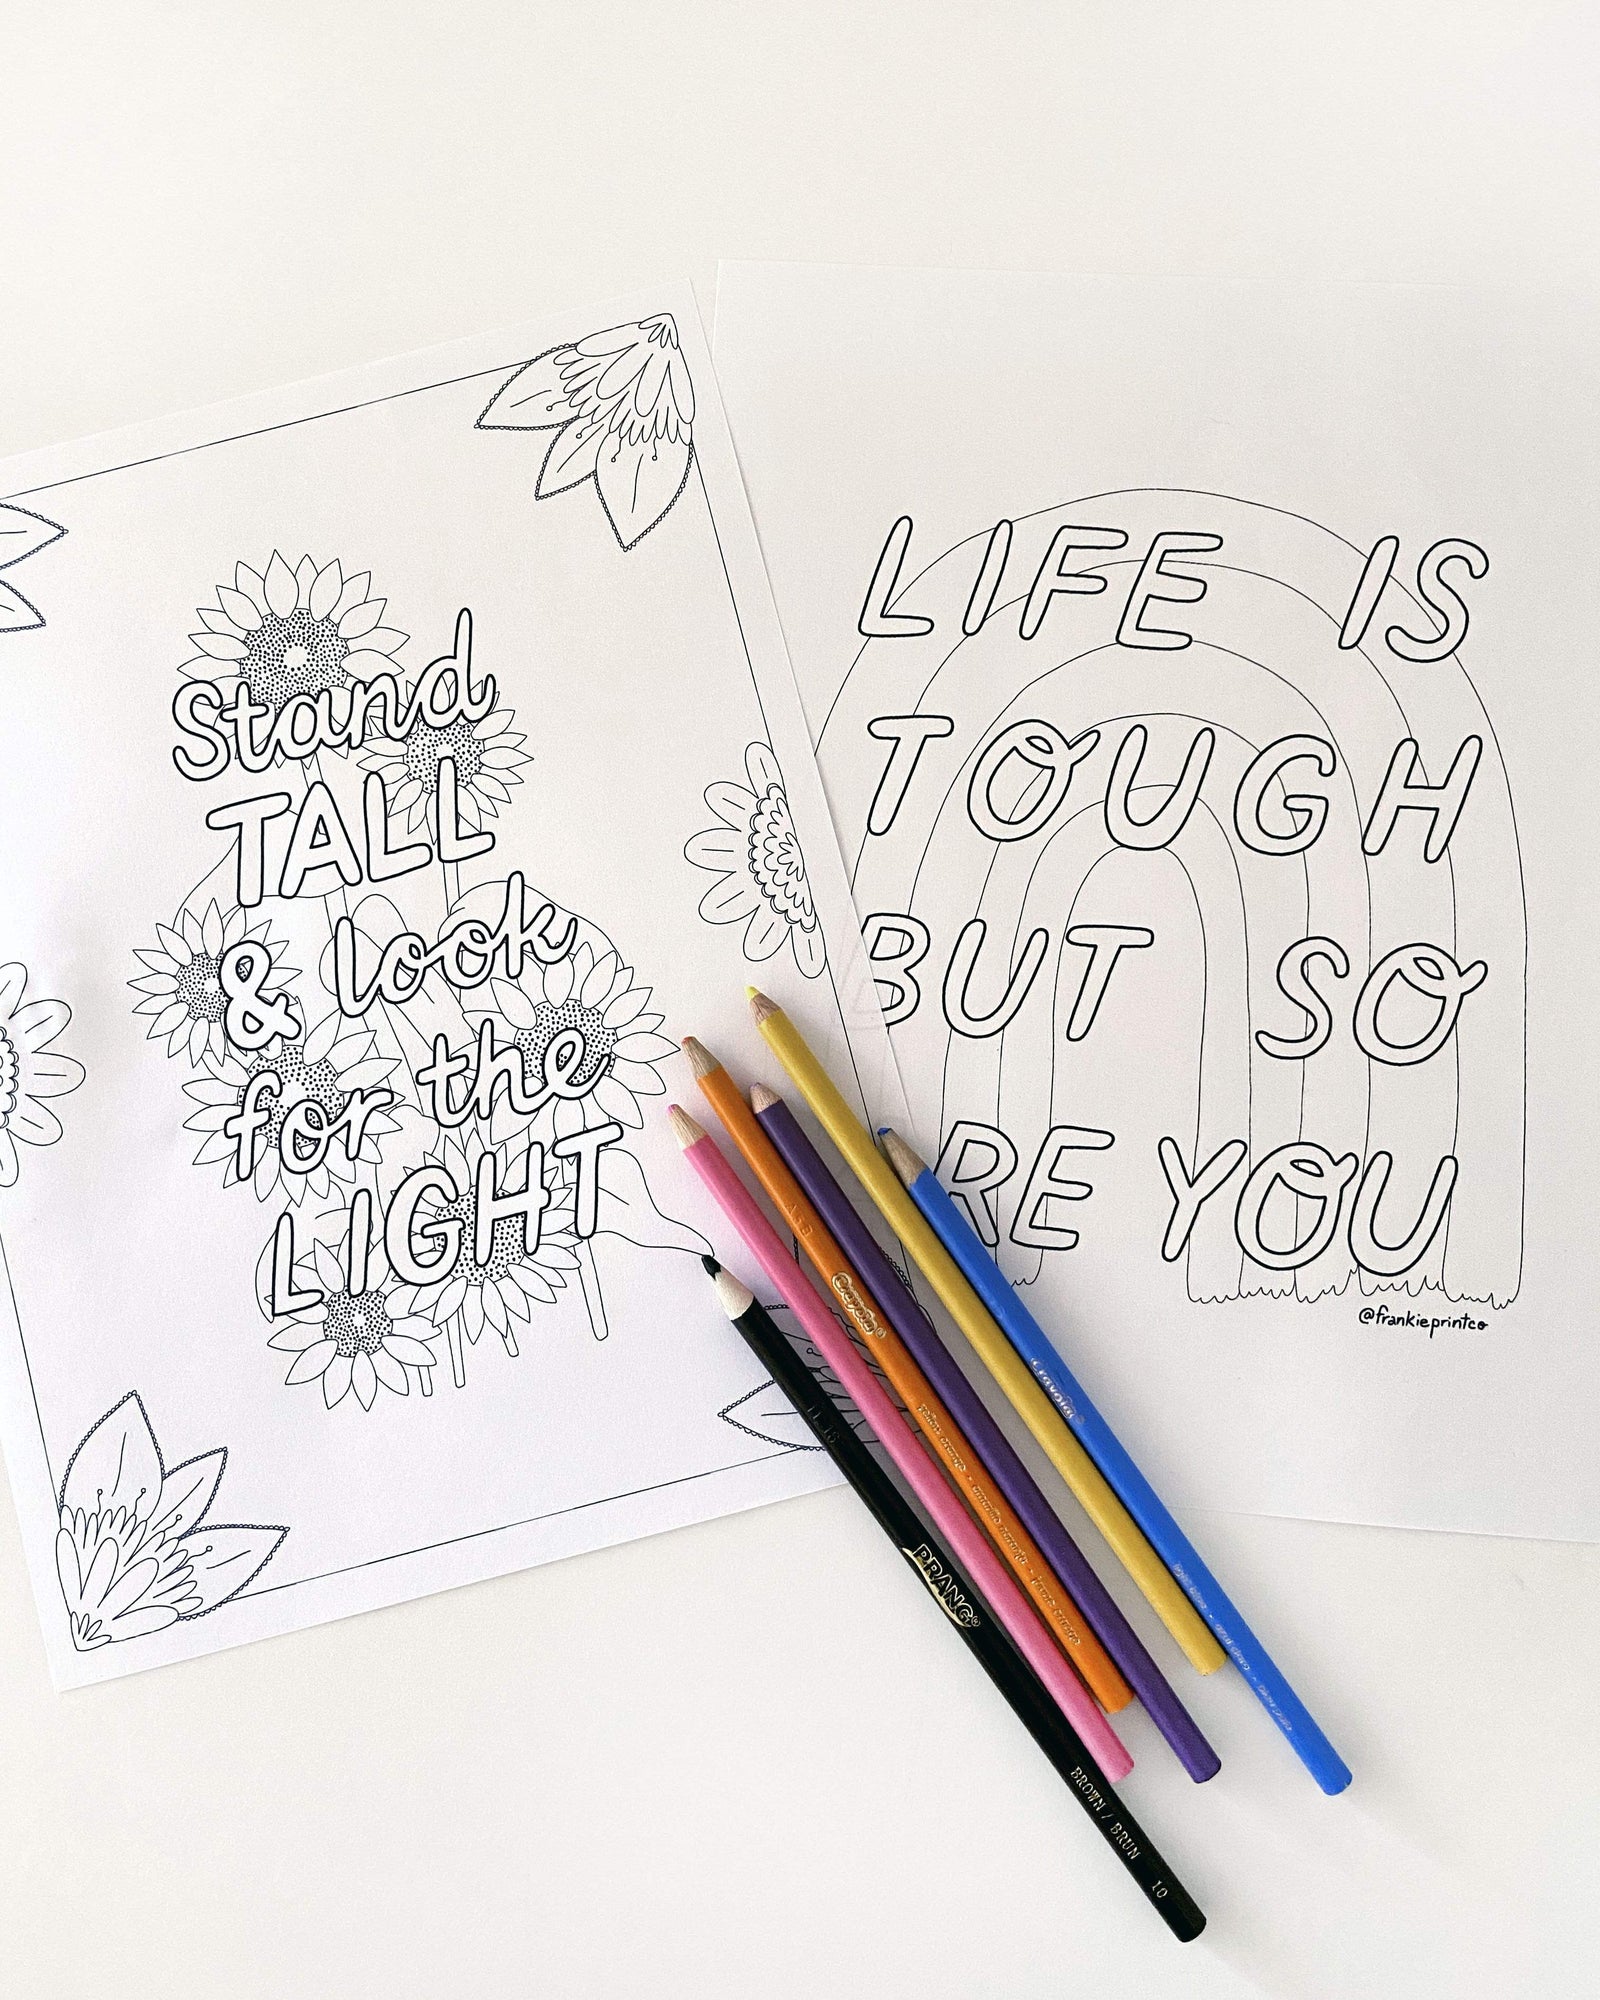 Stand
TALL
& look
for the
LIGHT
LIFE IS
TOUGH
BUT SO
RE YOU
@frankieprintco
Crayola®
yellow orange - amarillo naranja - jaune orange
Crayola®
PRANG®
BROWN / BRUN 10